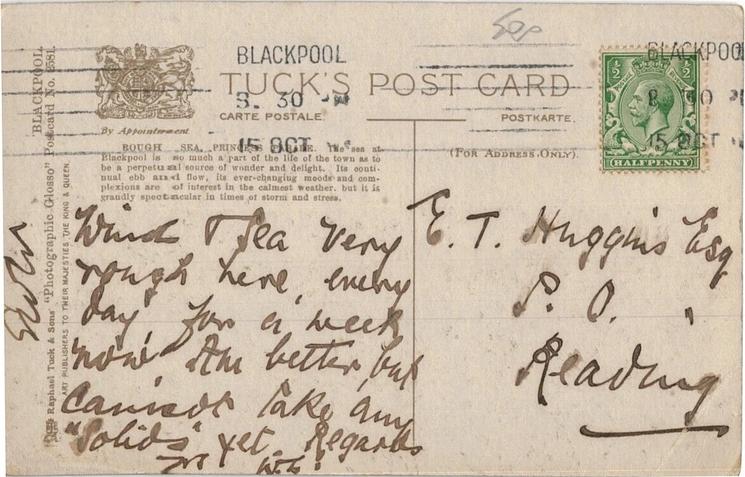 50p
BLACKPOOL
8. 30 PM
15 OCT
BLACKPOOL
8 30 P
15 OCT
TUCK'S POST CARD
CARTE POSTALE
POSTKARTE.
By Appointment
(FOR ADDRESS ONLY).
HALFPENNY
ROUGH SEA, PRINCESS PARADE. The sea at
Blackpool is so much a part of the life of the town as to
be a perpetual source of wonder and delight. Its conti-
nual ebb and flow, its ever-changing moods and com-
plexions are of interest in the calmest weather, but it is
grandly spectacular in times of storm and stress.
BLACKPOOL.
Raphael Tuck & Sons' "Photographic-Glosso" Postcard No. 5581.
ART PUBLISHERS TO THEIR MAJESTIES THE KING & QUEEN.
Wind & Sea very
rough here, every
day, for a week
now. Am better, but
cannot take any
"Solids" yet. Regards
E. T. Huggins Esq
P. O.
Reading